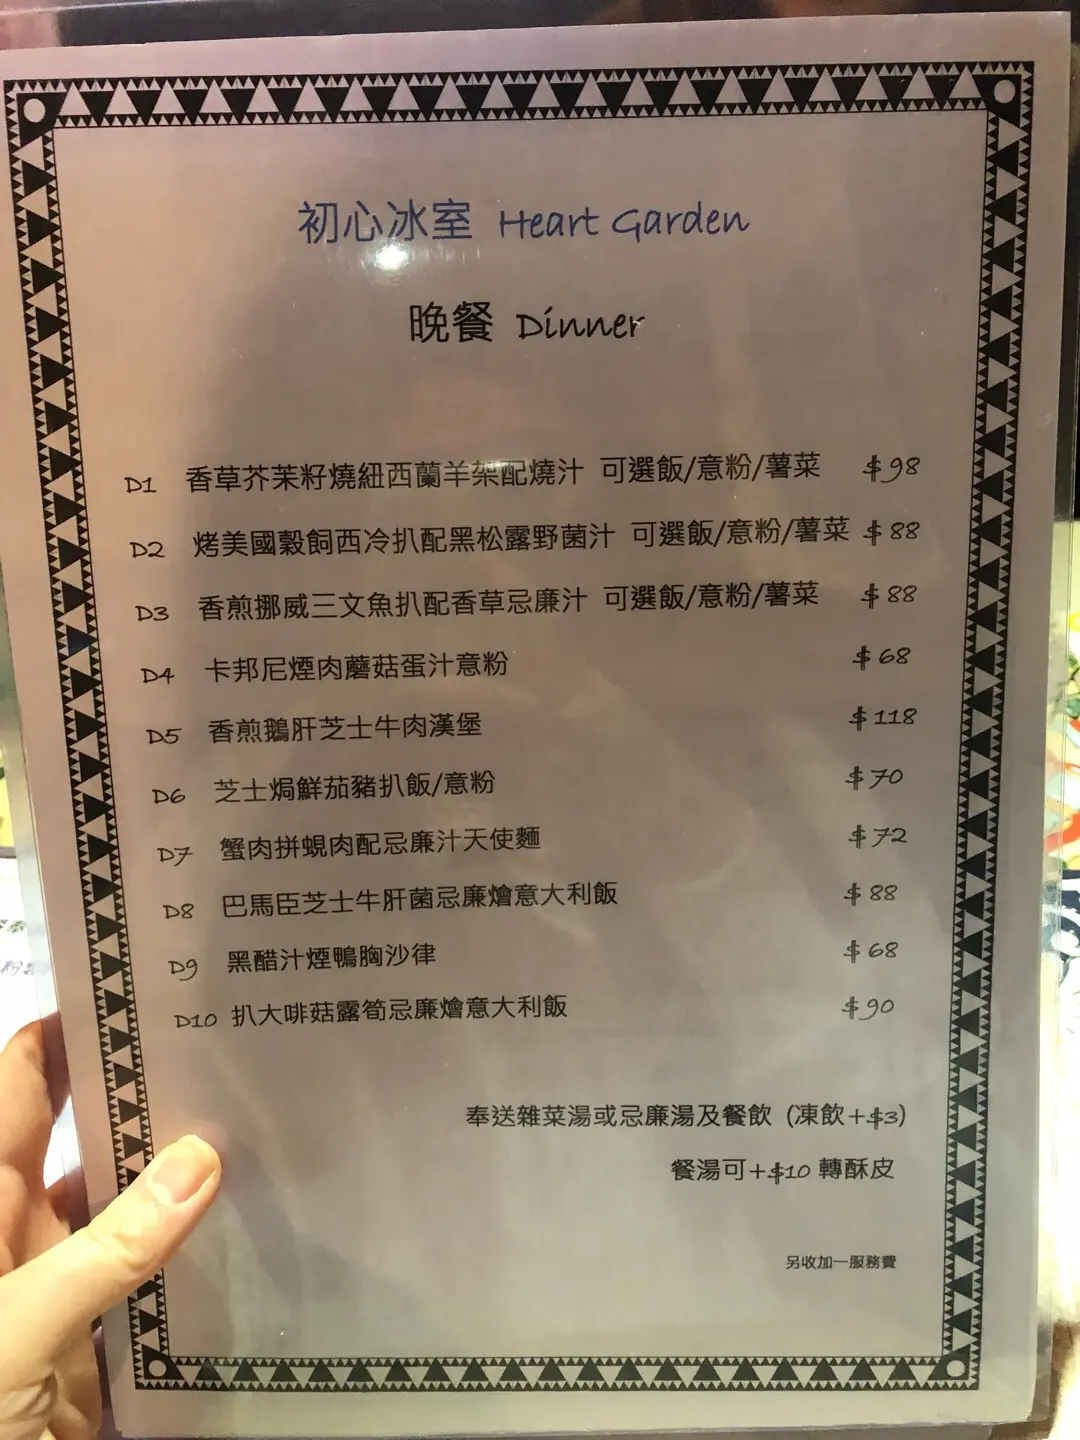 初心冰室 Heart Garden
晚餐 Dinner
D1 香草芥茉籽燒紐西蘭羊架配燒汁 可選飯/意粉/薯菜 $98
D2 烤美國穀飼西冷扒配黑松露野菌汁 可選飯/意粉/薯菜 $88
D3 香煎挪威三文魚扒配香草忌廉汁 可選飯/意粉/薯菜 $88
D4 卡邦尼煙肉蘑菇蛋汁意粉 $68
D5 香煎鵝肝芝士牛肉漢堡 $118
D6 芝士焗鮮茄豬扒飯/意粉 $70
D7 蟹肉拼蜆肉配忌廉汁天使麵 $72
D8 巴馬臣芝士牛肝菌忌廉燴意大利飯 $88
D9 黑醋汁煙鴨胸沙律 $68
D10 扒大啡菇露筍忌廉燴意大利飯 $90
奉送雜菜湯或忌廉湯及餐飲 (凍飲+$3)
餐湯可+$10 轉酥皮
另收加一服務費